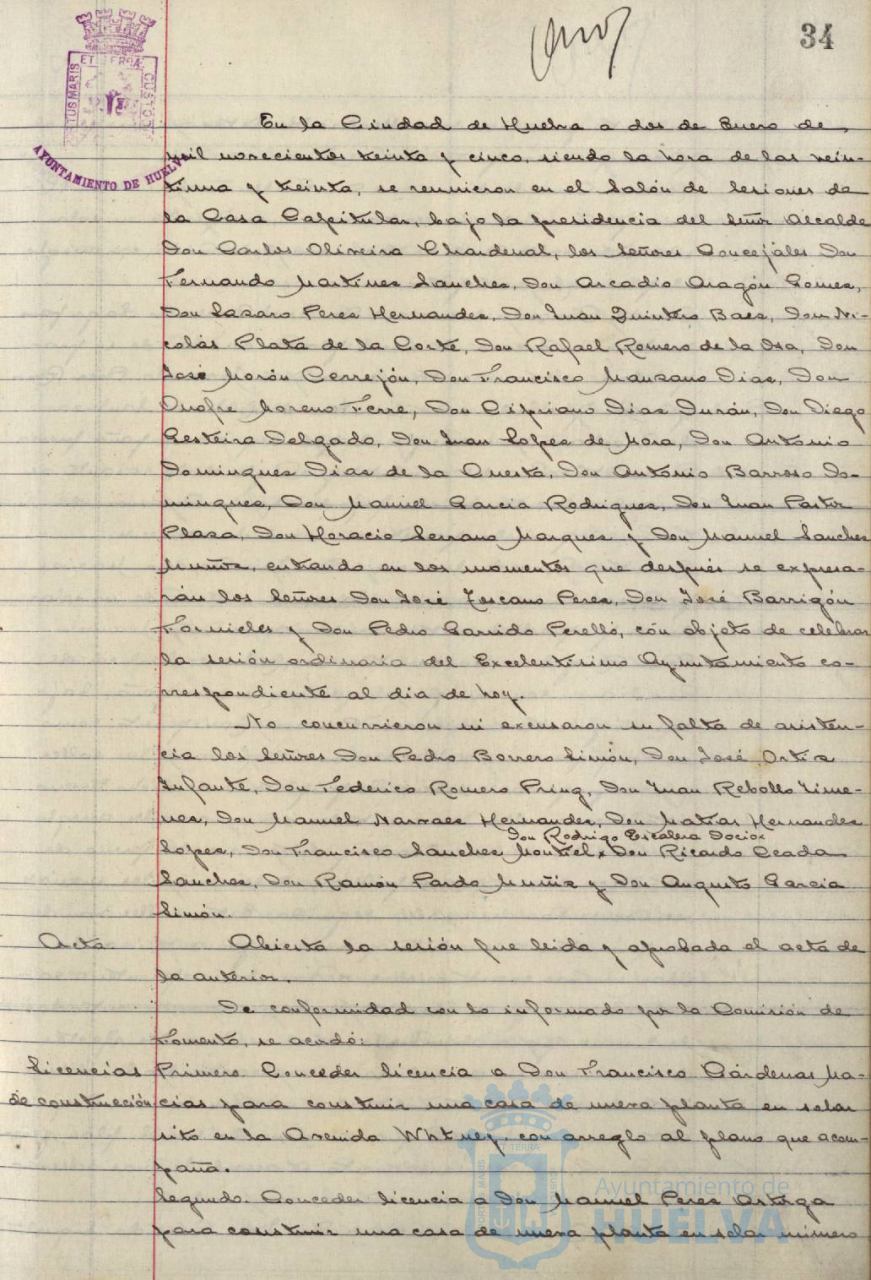 34
PORTUS MARIS ET TERRAE CUSTODIA
AYUNTAMIENTO DE HUELVA
En la Ciudad de Huelva a dos de Enero de
mil novecientos treinta y cinco, siendo la hora de las vein-
tiuna y treinta, se reunieron en el Salón de Sesiones de
la Casa Capitular, bajo la presidencia del Señor Alcalde
Don Carlos Oliveira Chardenal, los Señores Concejales Don
Fernando Martinez Sanchez, Don Arcadio Aragón Gomez,
Don Lazaro Perez Hernandez, Don Juan Quintero Baez, Don Ni-
colás Plata de la Corte, Don Rafael Romero de la Osa, Don
José Morón Cerrejón, Don Francisco Manzano Diaz, Don
Onofre Moreno Ferre, Don Cipriano Diaz Durán, Don Diego
Gesteira Delgado, Don Juan Lopez de Mora, Don Antonio
Dominguez Diaz de la Cuesta, Don Antonio Barroso Do-
minguez, Don Manuel Garcia Rodriguez, Don Juan Pastor
Plaza, Don Horacio Serrano Marquez y Don Manuel Sanchez
Muñoz, entrando en los momentos que después se expresa-
rán los Señores Don José Tascano Perez, Don José Barrigón
Fornieles y Don Pedro Garrido Perelló, con objeto de celebrar
la sesión ordinaria del Excelentisimo Ayuntamiento co-
rrespondiente al dia de hoy.
No concurrieron ni excusaron su falta de asisten-
cia los Señores Don Pedro Borrero Limón, Don José Ortiz
Infante, Don Federico Romero Pring, Don Juan Rebollo Jime-
nez, Don Manuel Narvaez Hernandez, Don Matias Hernandez
Don Rodrigo Escalera Docio
Lopez, Don Francisco Sanchez Montiel x Don Ricardo Ceada
Sanchez, Don Ramón Pardo Muñiz y Don Augusto Garcia
Limón.
Acta. Abierta la sesión fue leida y aprobada el acta de
la anterior.
De conformidad con lo informado por la Comisión de
Fomento, se acordó:
Licencias Primero. Conceder licencia a Don Francisco Cárdenas Ma-
de construcción cias para construir una casa de nueva planta en solar
sito en la Avenida Whtney, con arreglo al plano que acom-
paña.
Segundo. Conceder licencia a Don Manuel Perez Ortega
para construir una casa de nueva planta en solar número
Ayuntamiento de
HUELVA